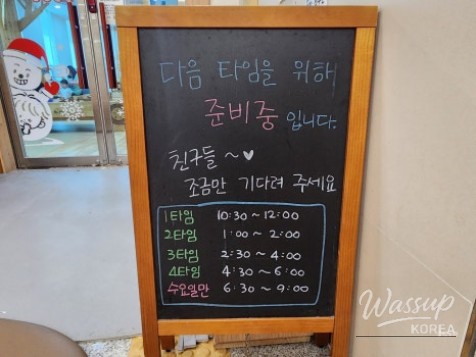 다음 타임을 위해
준비중 입니다.
친구들 ~ ♥
조금만 기다려 주세요
1타임 10:30 ~ 12:00
2타임 1:00 ~ 2:00
3타임 2:30 ~ 4:00
4타임 4:30 ~ 6:00
수요일만 6:30 ~ 9:00
Wassup
KOREA